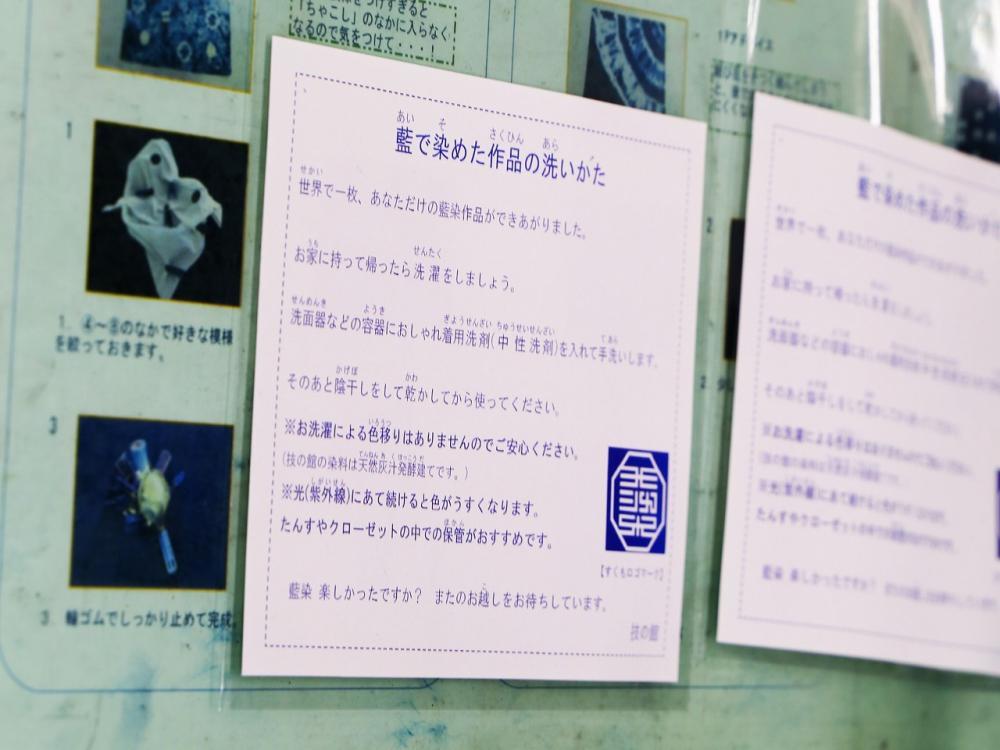 をつけすぎると
「ちゃこし」のなかに入らなく
なるので気をつけて・・・・!
1
1. ④～⑧のなかで好きな模様
を絞っておきます。
3
3. 輪ゴムでしっかり止めて完成
あい そ さくひん あら
藍で染めた作品の洗いかた
せかい
世界で一枚、あなただけの藍染作品ができあがりました。
うち せんたく
お家に持って帰ったら洗濯をしましょう。
せんめんき ようき ぎようせんざい ちゅうせいせんざい てあら
洗面器などの容器におしゃれ着用洗剤(中性洗剤)を入れて手洗いします。
かげぼ かわ
そのあと陰干しをして乾かしてから使ってください。
いろうつ
※お洗濯による色移りはありませんのでご安心ください。
てんねんあくはっこうだ
(技の館の染料は天然灰汁発酵建てです。)
しがいせん
※光(紫外線)にあて続けると色がうすくなります。
ほかん
たんすやクローゼットの中での保管がおすすめです。
【すくもロゴマーク】
こ
藍染 楽しかったですか? またのお越しをお待ちしています。
技の館
2
2
藍で染めた作品の洗いか
世界で一枚、あなただけの
お家に持って帰ったら洗濯をしましょう。
洗面器などの容器に
そのあと陰干しをして乾かして
※お洗濯による色移りは
※光(紫外線)にあて続けると
たんすやクローゼットの中での
藍染 楽しかったですか?